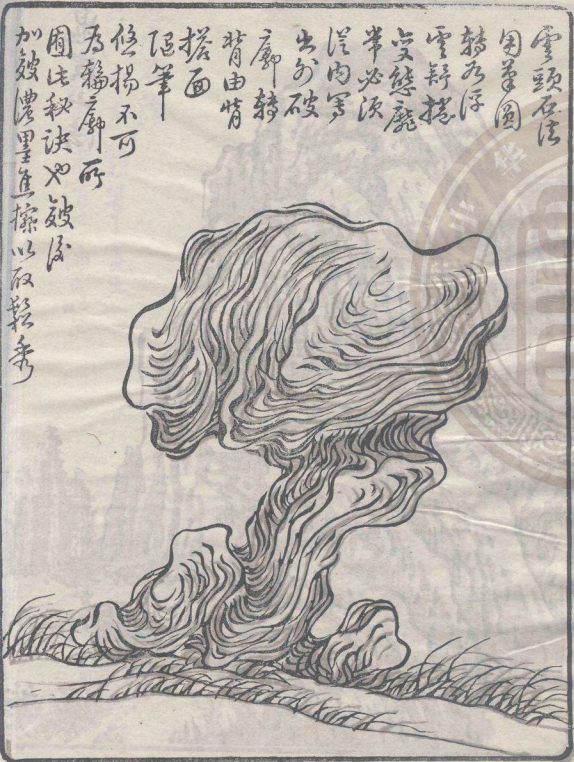 雲頭石法
用筆圓
轉若浮
雲舒捲
變態靡
常必須
從内寫
出外破
廓轉
背由背
搭面
隨筆
悠揚不可
為輪廓所
囿此秘訣也皴後
加皴濃墨焦擦以取鬆秀